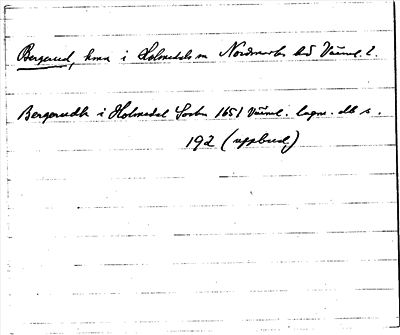 Bergerud, hmn i Holmedals sn Nordmarks hd Värml. l.
Bergerudh i Holmedal Sochn 1651 Värml. lagm. db s.
192 (uppbud.)